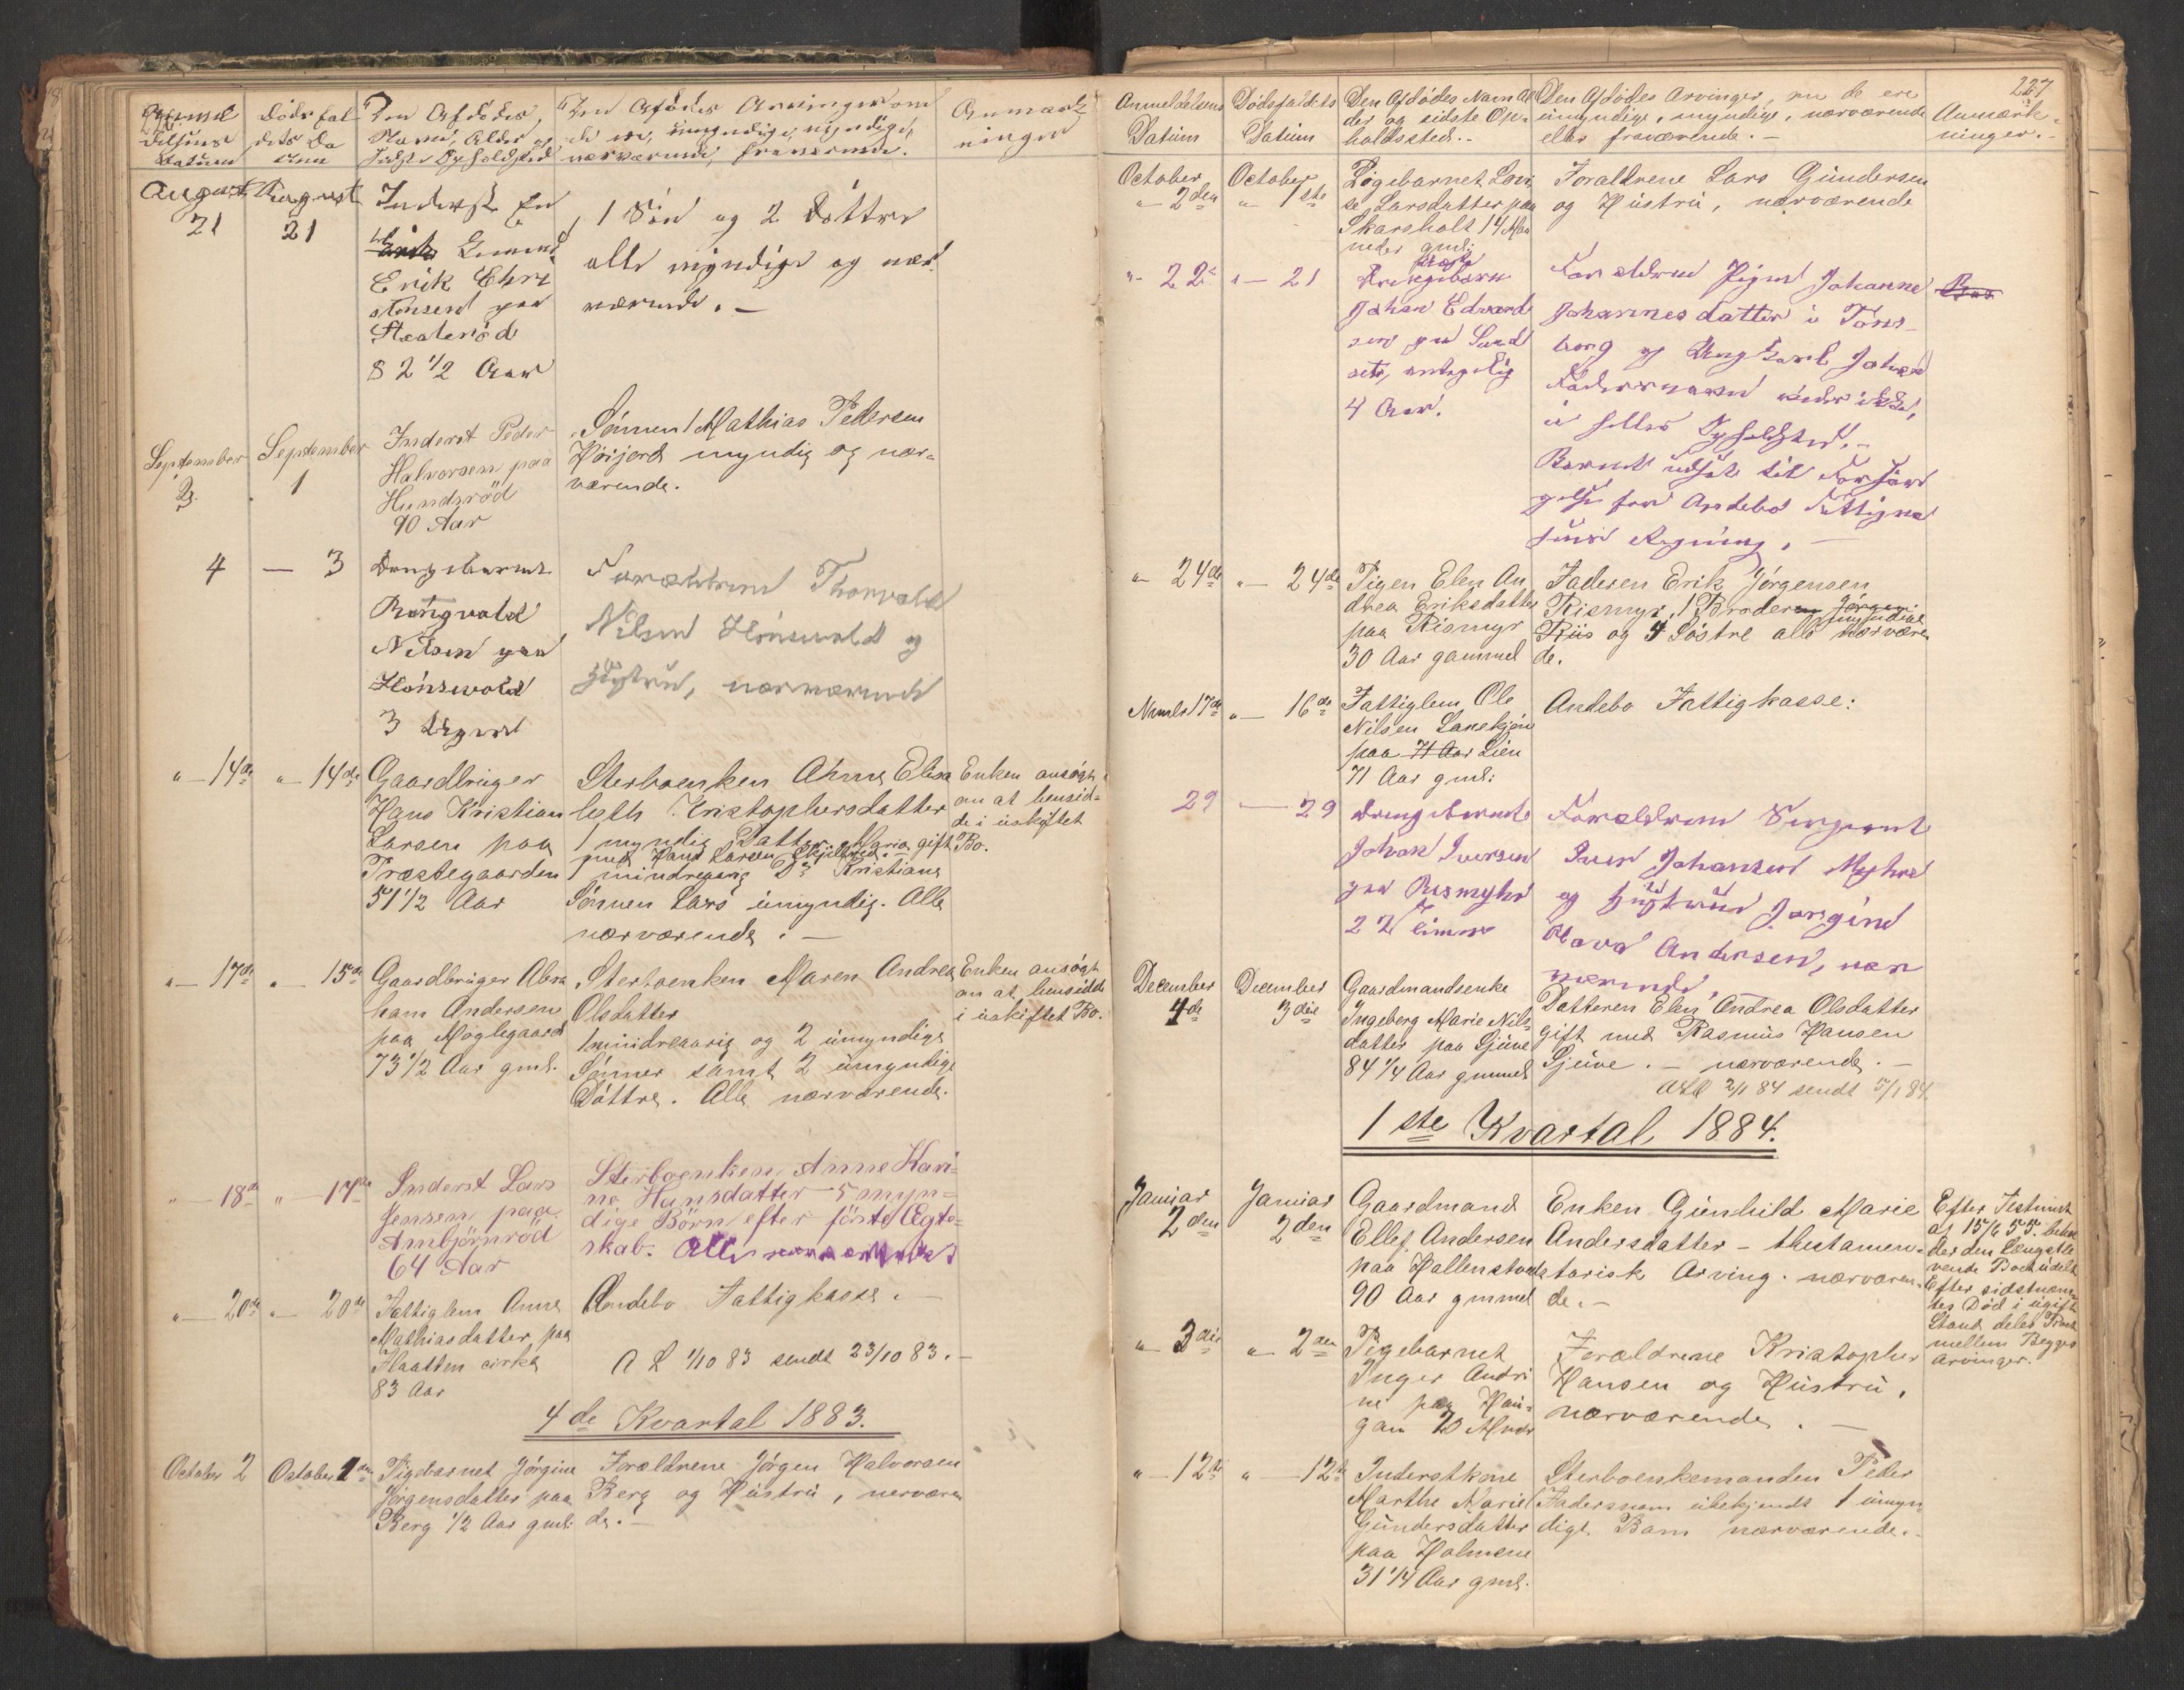 Dødsfal
dets Da
tum
Den Afdødes
Navn, Alder og
sidste Opholdsted
Den Afdødes Arvinger om
de ere, umyndige, myndige,
nærværende, fraværende.
Anmærk
ninger
August
21
August
21
Inderst
Erik Chri
stensen paa
82 1/2 Aar
1 Søn og 2 Døttre
alle myndige og nær
værende. —
September
2.
September
1
Inderst Peder
Halvorsen paa
Hundsröd
90 Aar
Sønnen Mathias Pedersen
Höijord myndig og nær-
værende.
4 — 3
Drengebarnet
Rangvald
Nilsen paa
Hönsvald
3 Uger
Forældrene Thorvald
Nilsen Hönsvald og
Hustru, nærværende
" — 14de " — 14de
Gaardbruger
Hans Kristian
Larsen paa
Præstegaarden
51 1/2 Aar
Sterboenken Anne Elisa
beth Kristophersdatter
1 myndig Datter Maria gift
med Hans Larsen
1 mindreaarig Do Kristiane
Sönnen Lars umyndig. Alle
nærværende. —
Enken ansøgt
om at hensid-
de i uskiftet
Bo.
" — 17de " — 15de
Gaardbruger Abra
ham Andersen
paa Möglegaard
73 1/2 Aar gml.
Sterboenken Maren Andrea
Olsdatter
1 mindreaarig og 2 umyndige
Sønner samt 2 umyndige
Döttre. Alle nærværende.
Enken ansøgt
om at hensidde
i uskiftet Bo.
" — 18de " — 17de
Inderst Lars
Jensen paa
Ambjörnröd
64 Aar
Sterboenken Anne Kari-
ne Hansdatter 5 myn-
dige Börn efter förste Ægte-
skab. Alle nærværende
" — 20de " — 20de
Fattiglem Anne
Mathiasdatter paa
Flaatten cirka
83 Aar
Andebo Fattigkasse. —
A L 1/10 83 sendt 23/10 83. —
4de Kvartal 1883.
October 2 October 1
Pigebarnet Jörgine
Jörgensdatter paa
Berg 1/2 Aar gml:
Forældrene Jörgen Halvorsen
Berg og Hustru, nærværen
de. —
227
Anmeldelsens
Datum
Dødsfaldets
Datum
Den Afdödes Navn Al
der og sidste Op-
holdssted. -
Den Afdödes Arvinger, om de ere
umyndige, myndige, nærværende
eller fraværende. —
Anmærk-
ninger. -
October
" 2den
October
" 1ste
Pigebarnet Lovi
se Larsdatter paa
Skarsholt 14 Maa
neder gml:
Forældrene Lars Gundersen
og Hustru, nærværende
" 22 " — 21
Johan Edvard
sen paa
4 Aar.
Forældrene Pigen Johanne
Johannesdatter i Töns-
berg og Ungkarl Johan
Opholdsted. —
Barnet udsat til Forsör
gelse for Andebo Fattigvæ
Regning. —
" 24de " — 24de
Pigen Elen An
drea Eriksdatter
paa Rismyr
30 Aar gammel
Faderen Erik Jörgensen
Rismyr, 1 Broder Jörgen
myndige
Riis og 4 Söstre alle nærværen
de.
17de " — 16de
Fattiglem Ole
Nilsen
paa 71 Aar Lien
71 Aar gml:
Andebo Fattigkasse:
29 — 29
Drengebarnet
Johan Iversen
paa Rismyhr
22 Timer
Forældrene Sergeant
Iver Johansen Myhre
og Hustru Jorgine
Olava Andersen, nær
værende.
December
4de
December
3die
Gaardmandsenke
Ingeborg Marie Nils-
datter paa Gjeine
84 1/4 Aar gammel
Datteren Elen Andrea Olsdatter
gift med Rasmus Hansen
Gjeine. — nærværende. —
2/1 84 sendt 5/1 84.
1ste Kvartal 1884.
Januar
2den
Januar
2den
Gaardmand
Ellef Andersen
paa Hallenstvedt
90 Aar gammel
Enken Gunhild Marie
Andersdatter - thestamen-
tarisk Arving. nærværen-
de. —
Efter Testiment
af 15/6 55. behol
der den Længstle
vende Boet udelt
Efter sidstnævn
tes Död i ugift
Stand deles
mellem Begges
Arvinger.
" — 3die " — 2den
Pigebarnet
Inger Andri
ne paa Hau-
gan 10 Mndr
Forældrene Kristopher
Hansen og Hustru,
nærværende. —
" — 12te " — 12te
Inderstkone
Marthe Marie
Gundersdatter
paa Holmene
31 1/4 Aar gml.
Sterboenkemanden Peder
(Fadersnavn ubekjendt 1 umyn-
digt Barn nærværende. -